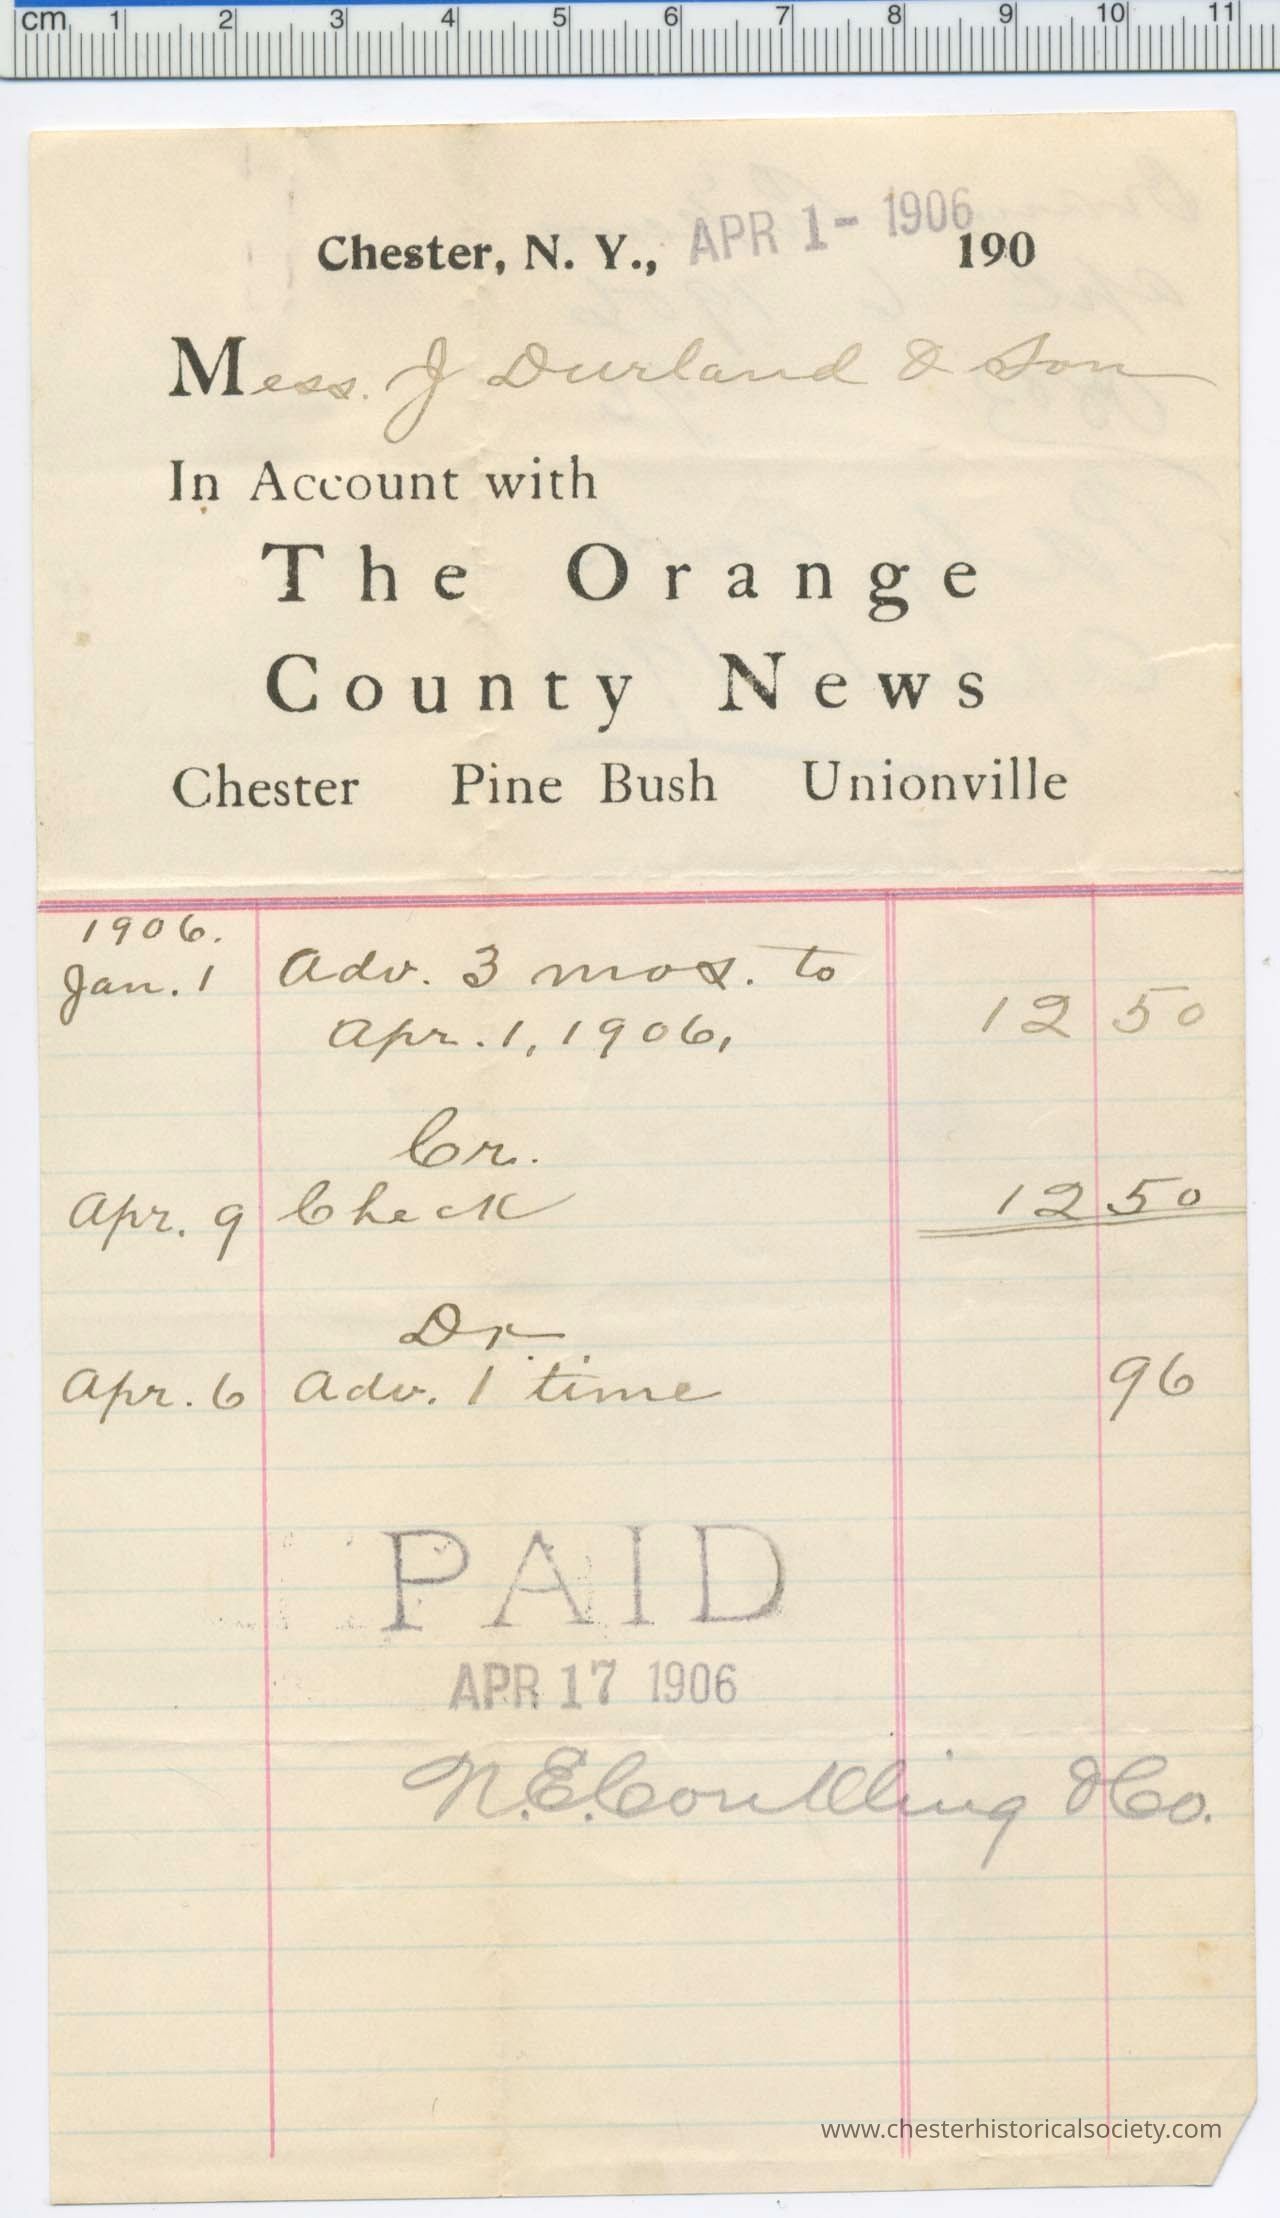 cm 1 2 3 4 5 6 7 8 9 10 11
APR 1- 1906
Chester, N. Y., 190
Mess. J Durland & Son
In Account with
The Orange
County News
Chester Pine Bush Unionville
1906.
Jan. 1 Adv. 3 mos. to
Apr. 1, 1906, 12 50
Cr.
Apr. 9 Check 12 50
Dr
Apr. 6 Adv. 1 time 96
PAID
APR 17 1906
N.E. Conkling & Co.
www.chesterhistoricalsociety.com